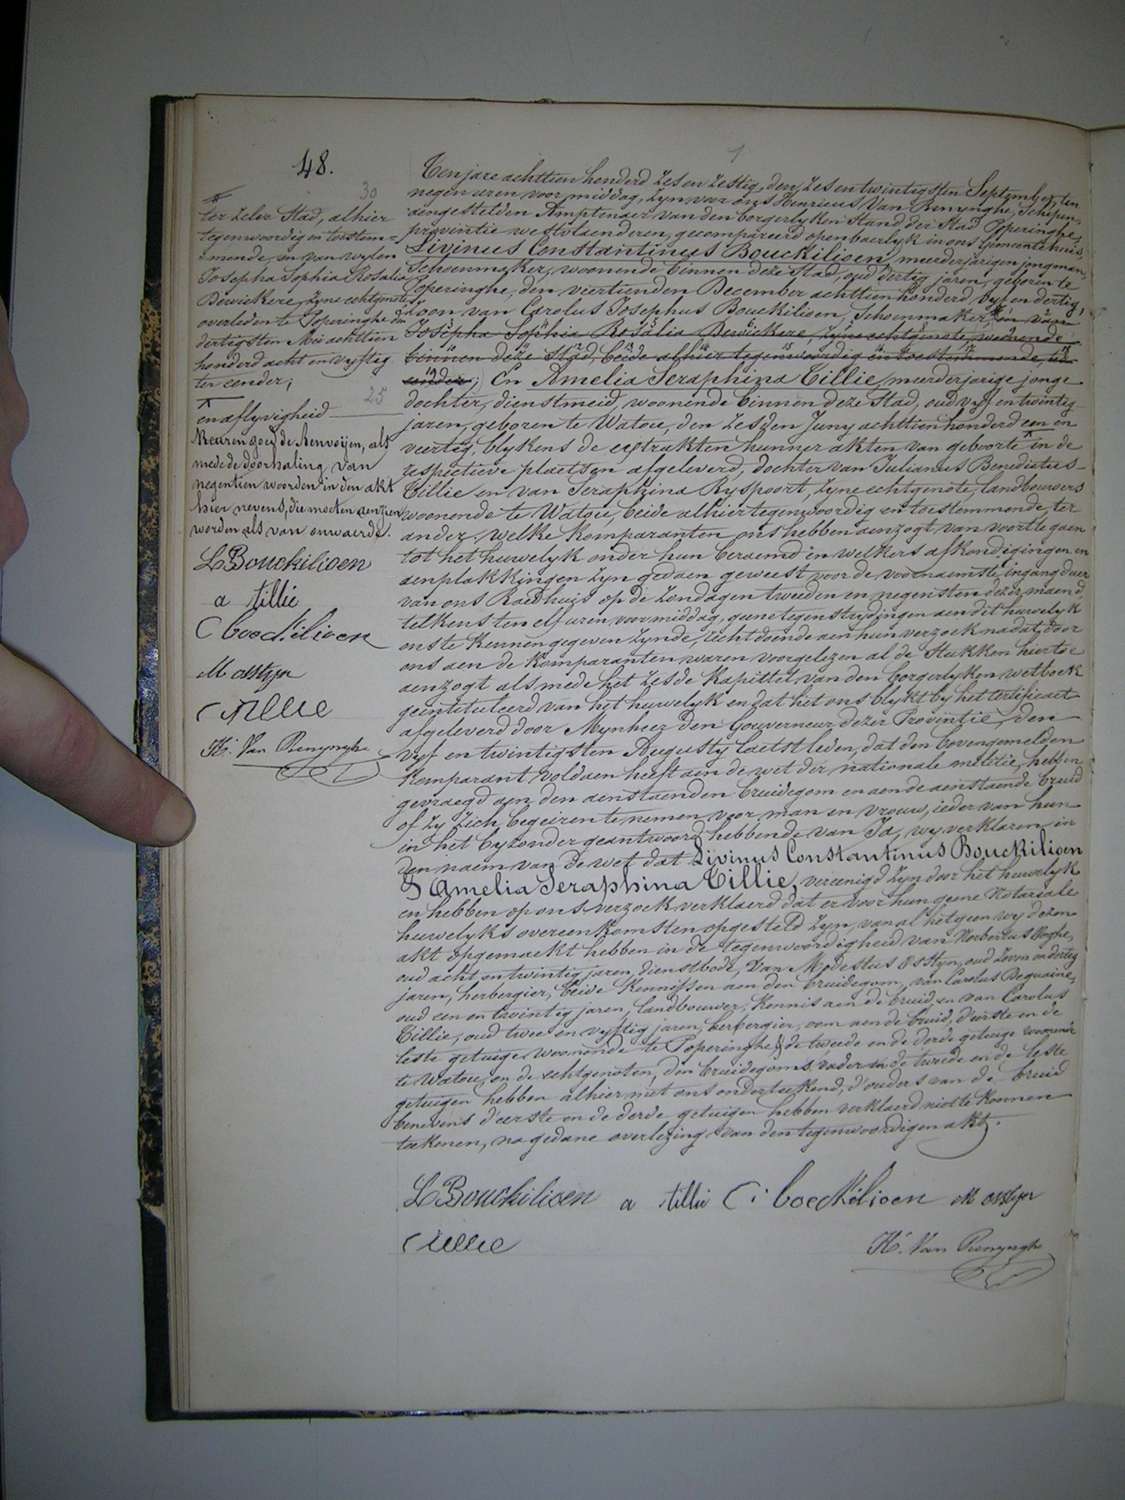 48.
30
ter zelver Stad, alhier
tegenwoordig en toestem=
mende, en van wylen
Josepha Sophia Rosalia
Bewickere, zyne echtgenote,
overleden te Poperinghe den
dertigsten Mei achttien
honderd acht en vyftig
ter eender;
25
en aflyvigheid
Waeren goed de Renvoijen, als
mede de doorhaling van
negentien woorden in den akt
hier nevens, die moeten aenzien
worden als van onwaerde.
L Bouckilioen
a tillie
C boeckilioen
M ostyn
C Tillie
H. Van Renynghe
1
Ten jare achttien honderd zes en zestig, den zes en twintigsten September, ten
negen uren voor middag, zyn voor ons Henricus Van Renynghe, Schepen,
aengestelden Amptenaer van den borgerlyken Stand der Stad Poperinghe,
provintie westvlaenderen, gecompareerd openbaerlyk in ons Gemeentehuis,
Livinus Constantinus Bouckilioen, meerderjarigen jongman,
Schoenmaker, woonende binnen deze Stad, oud dertig jaren, geboren te
Poperinghe, den viertienden December achttien honderd vyf en dertig,
zoon van Carolus Josephus Bouckilioen, Schoenmaker, en van
Josepha Sophia Rosalia Bewickere, zyne echtgenote, woonende
binnen deze Stad, beide alhier tegenwoordig en toestemmende, ter
eender; En Amelia Seraphina Tillie, meerderjarige jonge
dochter, dienstmeid, woonende binnen deze Stad, oud vyf en twintig
jaren, geboren te Watou, den zesden Juny achttien honderd een en
veertig, blykens de extrakten hunner akten van geboorte en de
respectieve plaetsen afgeleverd, dochter van Julianus Benedictus
Tillie en van Seraphina Ryspoort, zyne echtgenote, landbouwers
woonende te Watou, beide alhier tegenwoordig en toestemmende, ter
ander, welke komparanten ons hebben aenzogt van voort te gaen
tot het huwelyk onder hun beraemd en welkers afkondigingen en
aenplakkingen zyn gedaen geweest voor de voornaemste ingangdeur
van ons Raedhuis op de zondagen tweeden en negensten dezer maend,
telkens ten elf uren voormiddag, geene tegenstrydingen aen dit huwelyk
ons te kennen gegeven zynde, recht doende aen hun verzoek nadat door
ons aen de komparanten waren voorgelezen al de Stukken hiertoe
aenzogt als mede het zesde kapittel van den borgerlyken wetboek
geintituleerd van het huwelyk en dat het ons blykt by het certificaet
afgeleverd door Mynheer den Gouverneur dezer Provintie, den
vyf en twintigsten Augusty laetstleden, dat den bovengemelden
komparant voldaen heeft aen de wet der nationale melitie, hebben
gevraegd aen den aenstaenden bruidegom en aen de aenstaende bruid
of zy zich begeiren te nemen voor man en vrouw, ieder van hun
in het byzonder geantwoord hebbende van Ja, wy verklaren in
den naem van de wet dat Livinus Constantinus Bouckilioen
& Amelia Seraphina Tillie, vereenigd zyn door het huwelyk
en hebben op ons verzoek verklaerd dat er voor hun geene Notariale
huwelyks overeenkomsten opgesteld zyn, van al hetgeen wy dezen
akt opgemaekt hebben in de tegenwoordigheid van Norbertus Hoghe,
oud acht en twintig jaren, dienstbode, van Modestus Ostyn, oud zeven en dertig
jaren, herbergier, beide kennissen aen den bruidegom, van Carolus Dequaine,
oud een en twintig jaren, landbouwer, kennis aen de bruid, en van Carolus
Tillie, oud twee en vyftig jaren, herbergier, oom aen de bruid, d'eerste en de
leste getuige woonende te Poperinghe & de tweede en de derde getuige woonende
te Watou, en de echtgenoten, den bruidegoms vader en de tweede en de leste
getuigen hebben alhier met ons onderteekend, d'ouders van de bruid
benevens d'eerste en de derde getuigen hebben verklaerd niet te konnen
teekenen, na gedane overlezing van den tegenwoordigen akt.
L Bouckilioen a tillie C: boeckilioen M ostyn
C Tillie
H. Van Renynghe